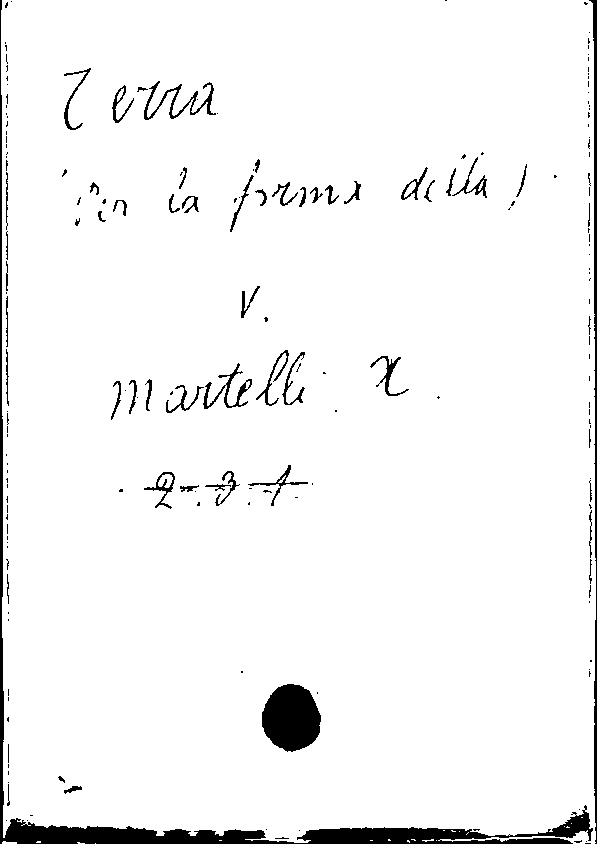 Terra
(Per la forma della)
V.
Martelli X
2-3-1